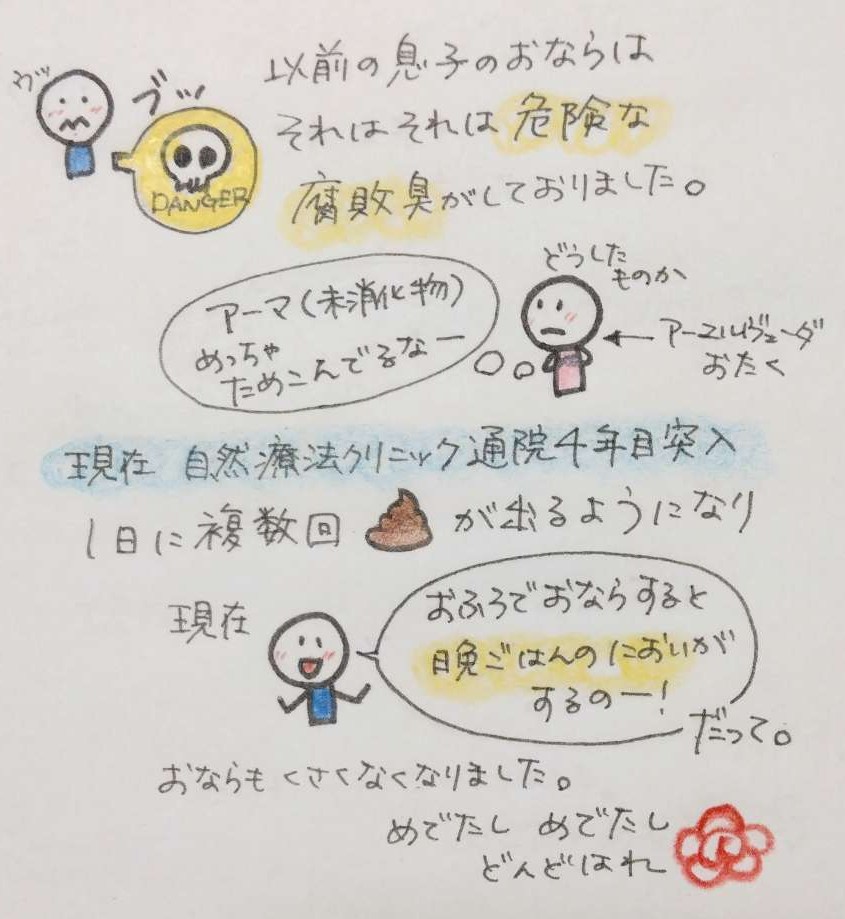 以前の息子のおならは
それはそれは危険な
腐敗臭がしておりました。
ブッ
DANGER
どうした
ものか
アーマ(未消化物)
めっちゃ
ためこんでるなー
アーユルヴェーダ
おたく
現在 自然療法クリニック通院4年目突入
1日に複数回 が出るようになり
現在
おふろでおならすると
晩ごはんのにおいが
するのー!
だって。
おならもくさくなくなりました。
めでたし めでたし
どんどはれ